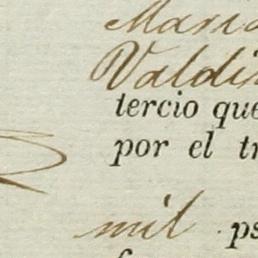 Maria
Valdi
tercio que
por el tr
mil ps